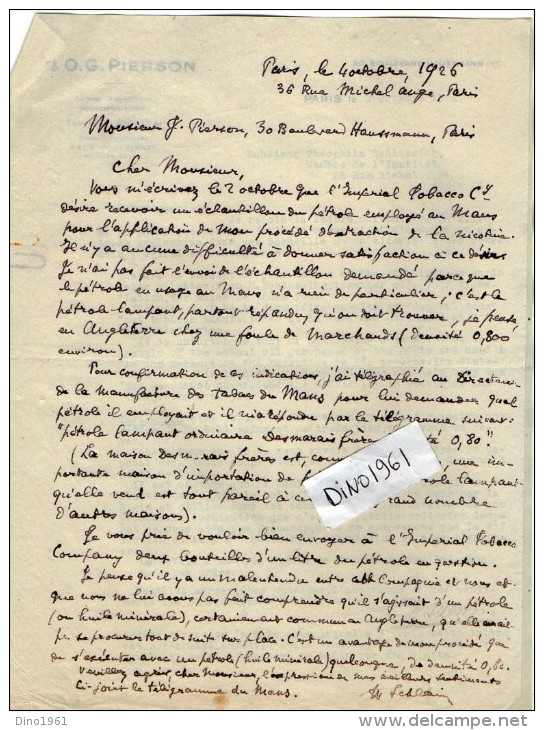 O.G. PIERSON
Paris, le 4 octobre, 1926
36 Rue Michel Ange, Paris
Monsieur J. Pierson, 30 Boulevard Haussmann, Paris
Cher Monsieur,
Vous m'écrivez le 2 octobre que l'Imperial Tobacco Cy
désire recevoir un échantillon du pétrole employé au Mans
pour l'application de mon procédé d'extraction de la nicotine.
Il n'y a aucune difficulté à donner satisfaction à ce désir.
Je n'ai pas fait l'envoi de l'échantillon demandé parce que
le pétrole en usage au Mans n'a rien de particulier; c'est le
pétrole lampant, partout répandu, qu'on doit trouver, je pense,
en Angleterre chez une foule de marchands (densité 0,800
environ).
Pour confirmation de ces indications, j'ai télégraphié au Directeur
de la manufacture des tabacs du Mans pour lui demander quel
pétrole il employait et il m'a répondu par le télégramme suivant:
"pétrole lampant ordinaire Desmarais frères té 0,80".
(La maison Desmarais frères est, une im-
portante maison d'importation de lampant
qu'elle vend est tout pareil à grand nombre
d'autres maisons).
Je vous prie de vouloir bien envoyer à l'Imperial Tobacco
Company deux bouteilles d'un litre du pétrole en question.
Je pense qu'il y a un malentendu entre cette Compagnie et nous et
que nous ne lui avons pas fait comprendre qu'il s'agissait d'un pétrole
(ou huile minérale), certainement commun en Angleterre, qu'elle aurait
pu se procurer tout de suite sur place. C'est un avantage de mon procédé que
de s'exécuter avec un pétrole (huile minérale) quelconque, de densité 0,80.
Veuillez agréer, cher Monsieur, l'expression de mes meilleurs sentiments
Ci-joint le télégramme du Mans.
DINO1961
Dino1961
delcampe.net